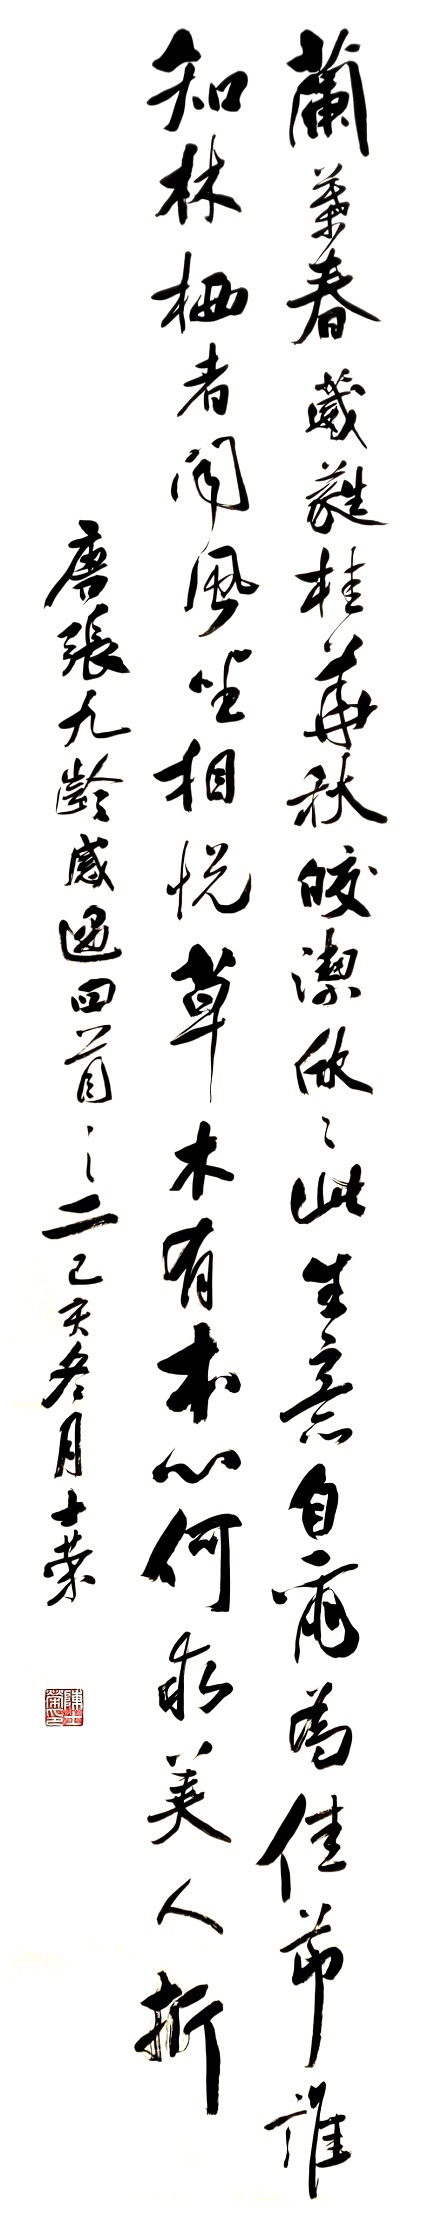 蘭葉春葳蕤桂華秋皎潔欣〻此生意自爾為佳節誰
知林栖者聞風坐相悅草木有本心何求美人折
唐張九齡感遇四首之二己亥冬月士荣
陳士榮印